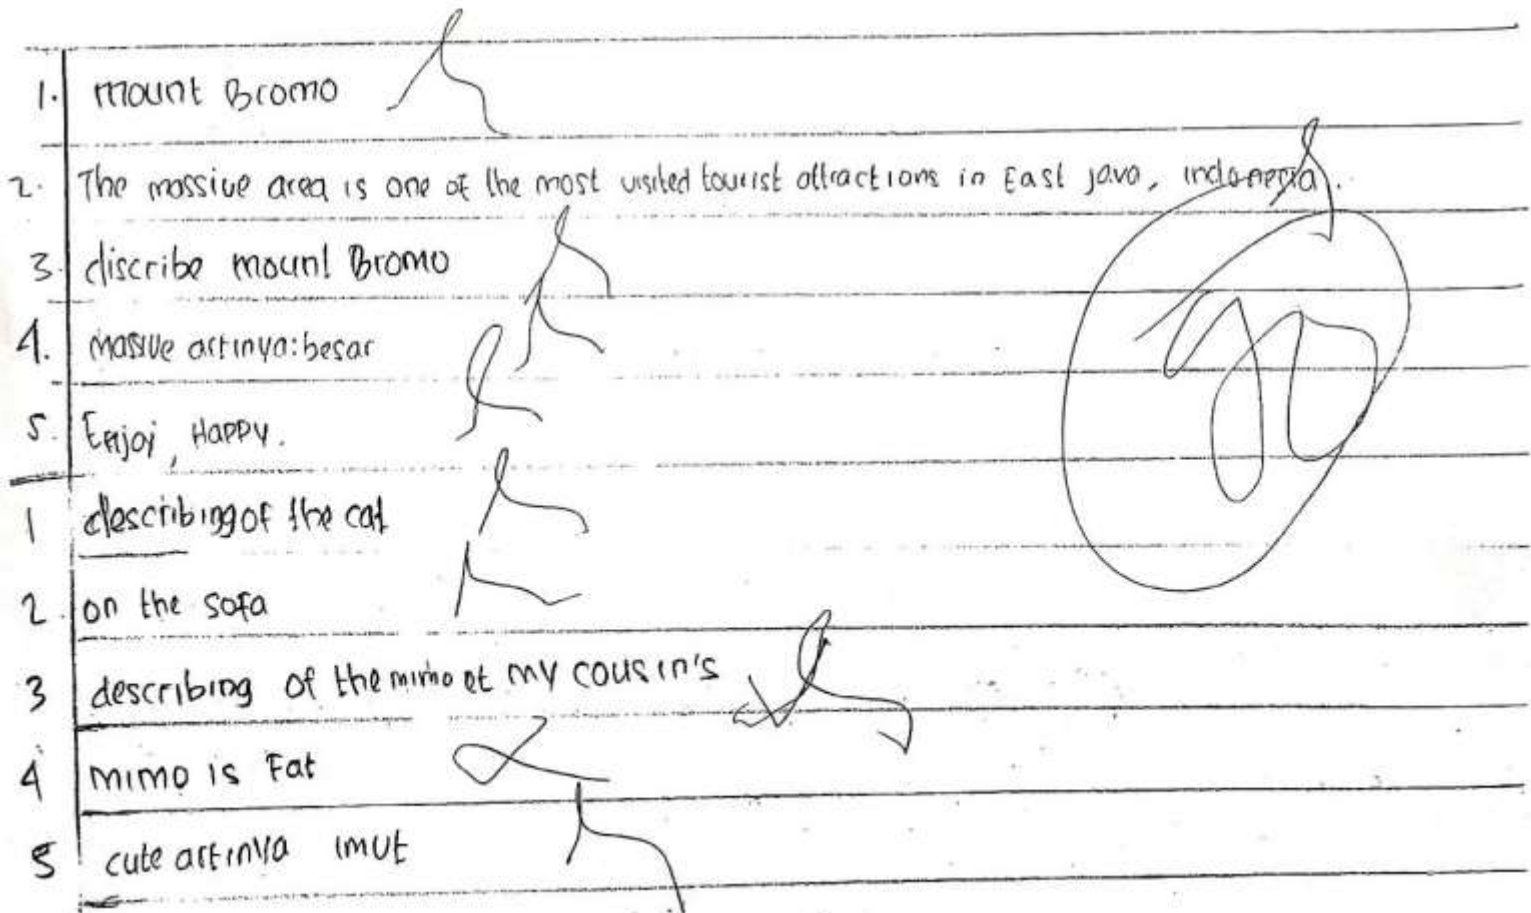 1. Mount Bromo
2. The massive area is one of the most visited tourist attractions in East java, indonesia.
3. discribe mount Bromo
4. masive artinya: besar
5. Enjoi, Happy.
1 describing of the cat
2. on the sofa
3 describing of the mimo at my cousin's
4 mimo is Fat
5 cute artinya imut